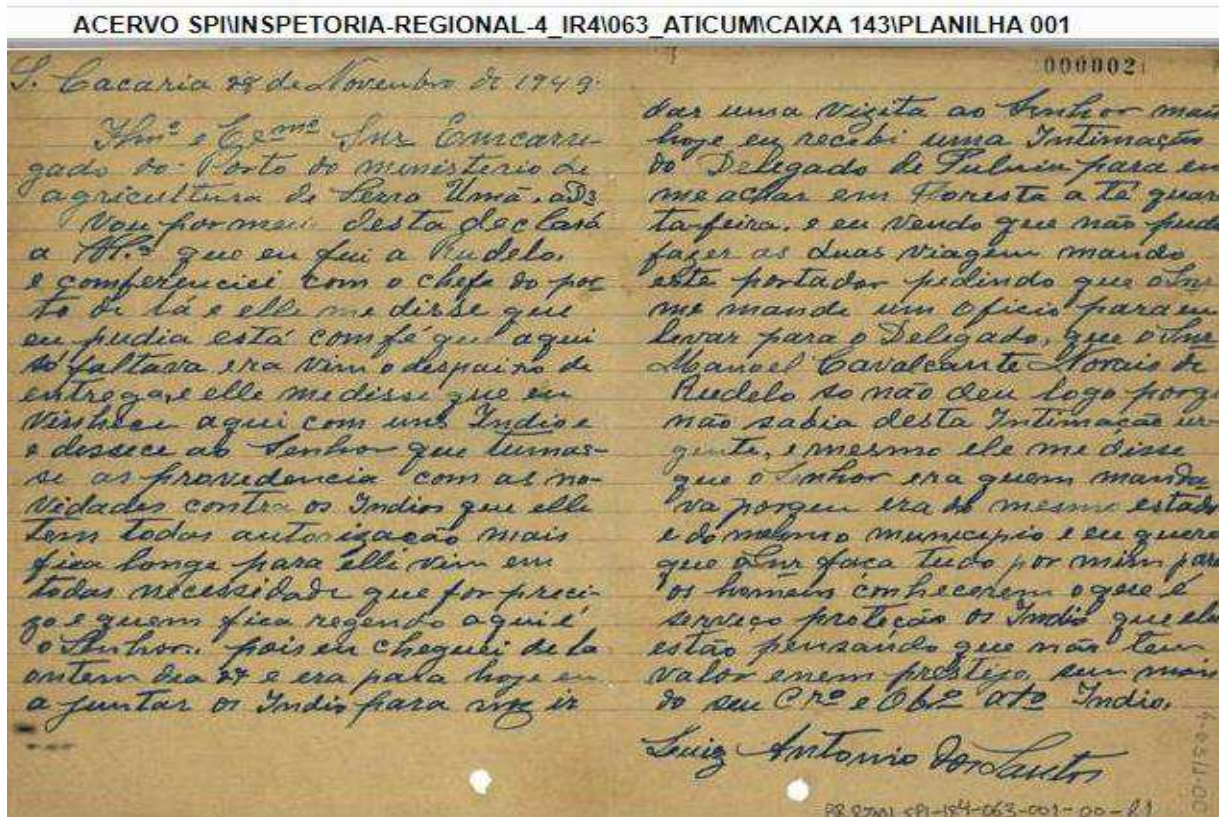 ACERVO SPI\INSPETORIA-REGIONAL-4_IR4\063_ATICUM\CAIXA 143\PLANILHA 001
000002
S. Cacaria 28 de Novembro de 1949.
Ilmº e Exmº Snr Emcarre-
gado do Posto do ministerio da
agricultura de Serra Umã.
Vou por meio desta declará
a que eu fui a Rudelo.
e comferenciei com o chefe do pos
to de lá e elle me disse que
eu pudia está com fé que aqui
só faltava era vim o despaixo de
entrega, e elle me disse que eu
viesse aqui com uns Indios
e dissece ao Senhor que tumas-
se as providencia com as no-
vidades contra os Indios que elle
tem todas autorização mais
fica longe para elle vim em
todas necessidade que for preci-
zo e quem fica regendo aqui é
o Senhor. pois eu cheguei de la
ontem dia 27 e era para hoje eu
a juntar os Indis para noz ir
dar uma vizita ao Senhor mais
hoje eu recebi uma Intimação
do Delegado de Pulicia para eu
me achar em Floresta a té quar
ta feira, e eu vendo que não pude
fazer as duas viagem mando
este portador pedindo que o Snr
me mande um oficio para eu
levar para o Delegado, que o Snr
Manoel Cavalcante Novais de
Rudelo so não deu logo porque
não sabia desta Intimação ur-
gente, e mesmo ele me disse
que o Senhor era quem manda
va porque era do mesmo estado
e do mesmo municipio e eu quero
que o Snr faca tudo por mim para
os homeis conhecerem o que é
serviço proteção os Indis que eles
estão pensando que não tem
valor enem prestijo, sem mais
do seu Crº e Obº Atº Indio.
Luiz Antonio dos Santos